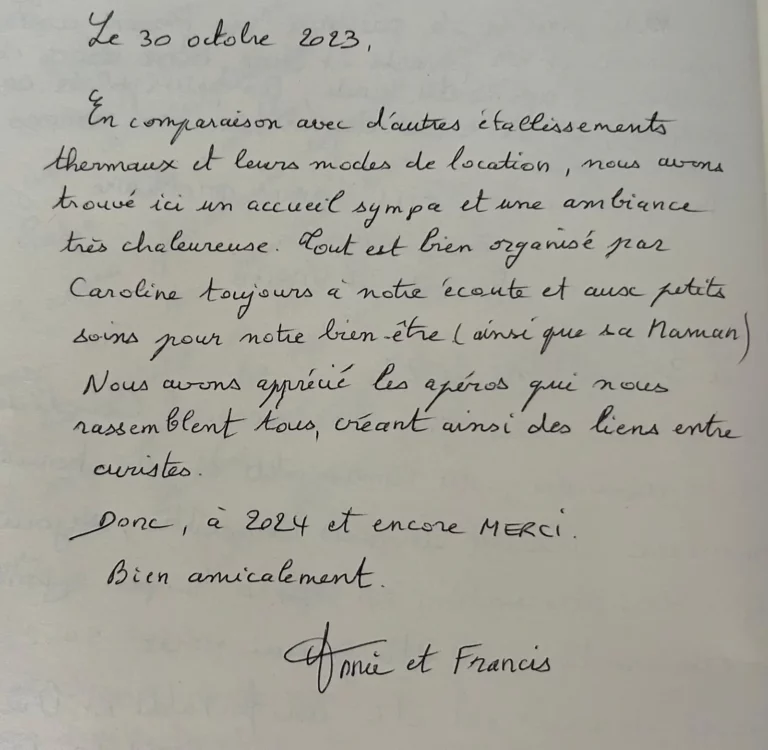 Le 30 octobre 2023,
En comparaison avec d'autres établissements
thermaux et leurs modes de location, nous avons
trouvé ici un accueil sympa et une ambiance
très chaleureuse. Tout est bien organisé par
Caroline toujours à notre écoute et aux petits
soins pour notre bien-être (ainsi que sa Maman)
Nous avons apprécié les apéros qui nous
rassemblent tous, créant ainsi des liens entre
curistes.
Donc, à 2024 et encore MERCI.
Bien amicalement.
Annie et Francis